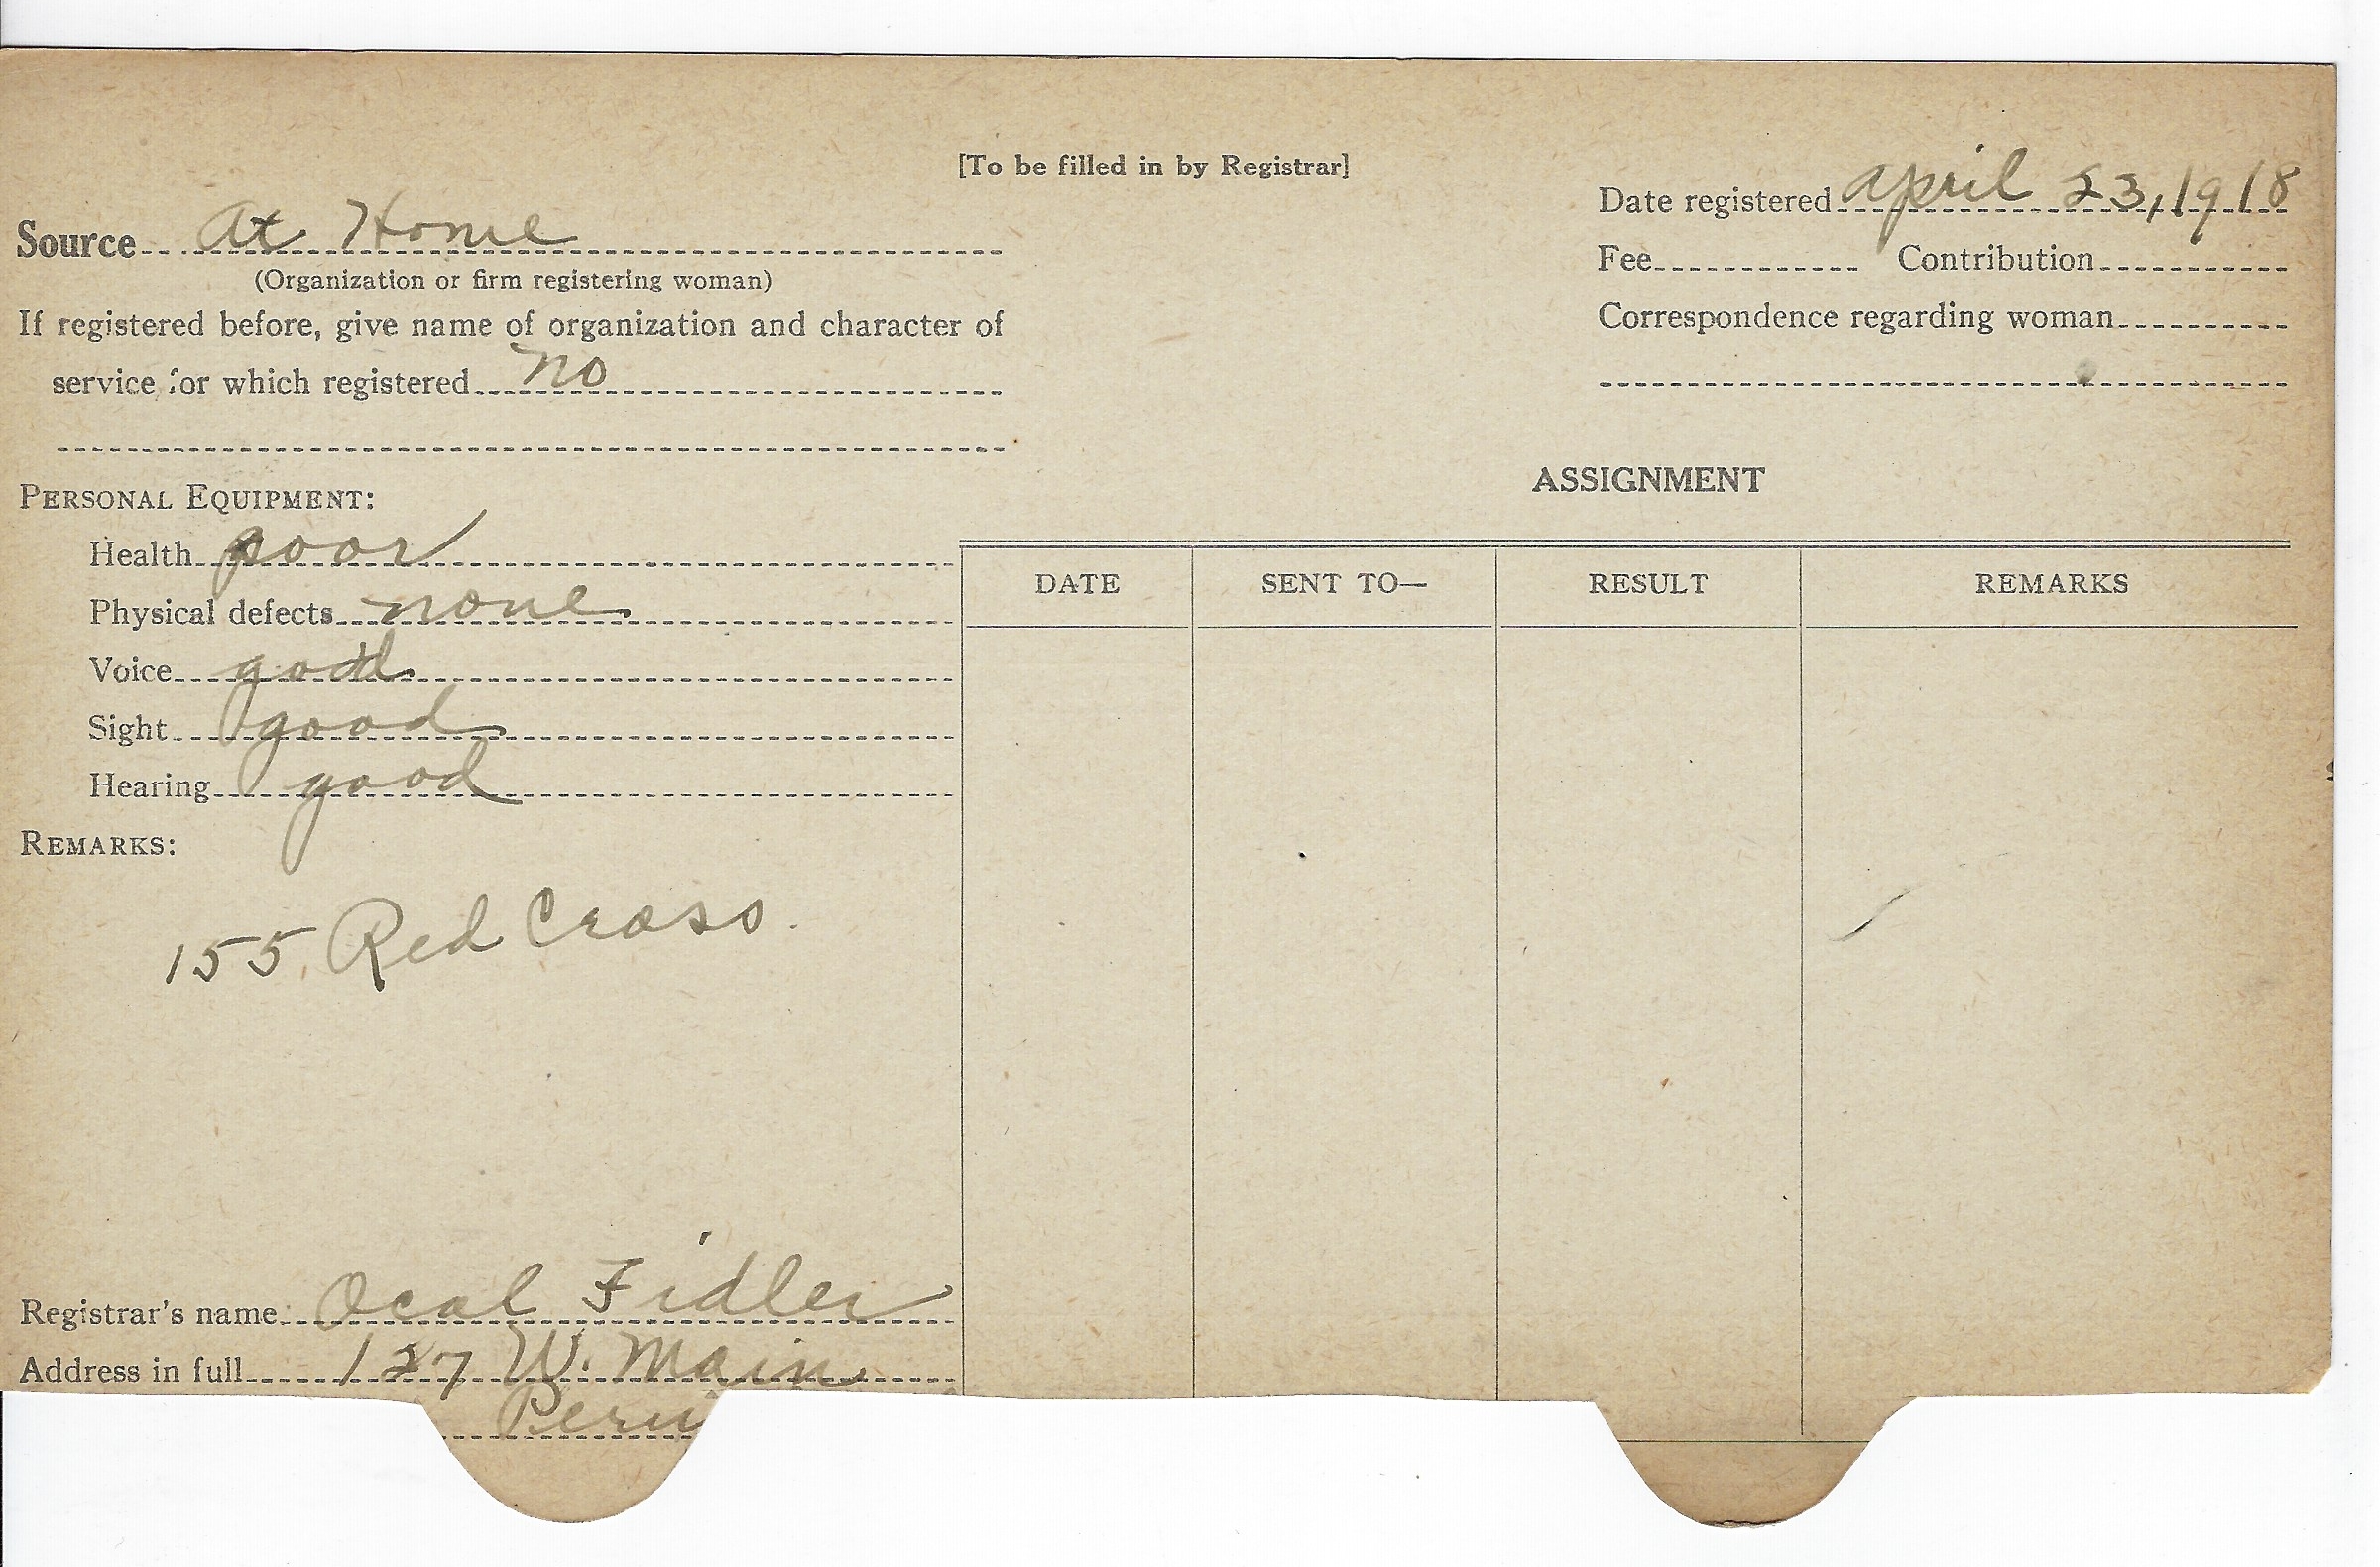 [To be filled in by Registrar]
Source At Home
(Organization or firm registering woman)
If registered before, give name of organization and character of
service for which registered no
Date registered April 23, 1918
Fee Contribution
Correspondence regarding woman
PERSONAL EQUIPMENT:
Health poor
Physical defects none
Voice good
Sight good
Hearing good
REMARKS:
155 Red Cross.
Registrar's name Ocal Fidler
Address in full 127 W. Main
Peru
ASSIGNMENT
DATE SENT TO— RESULT REMARKS